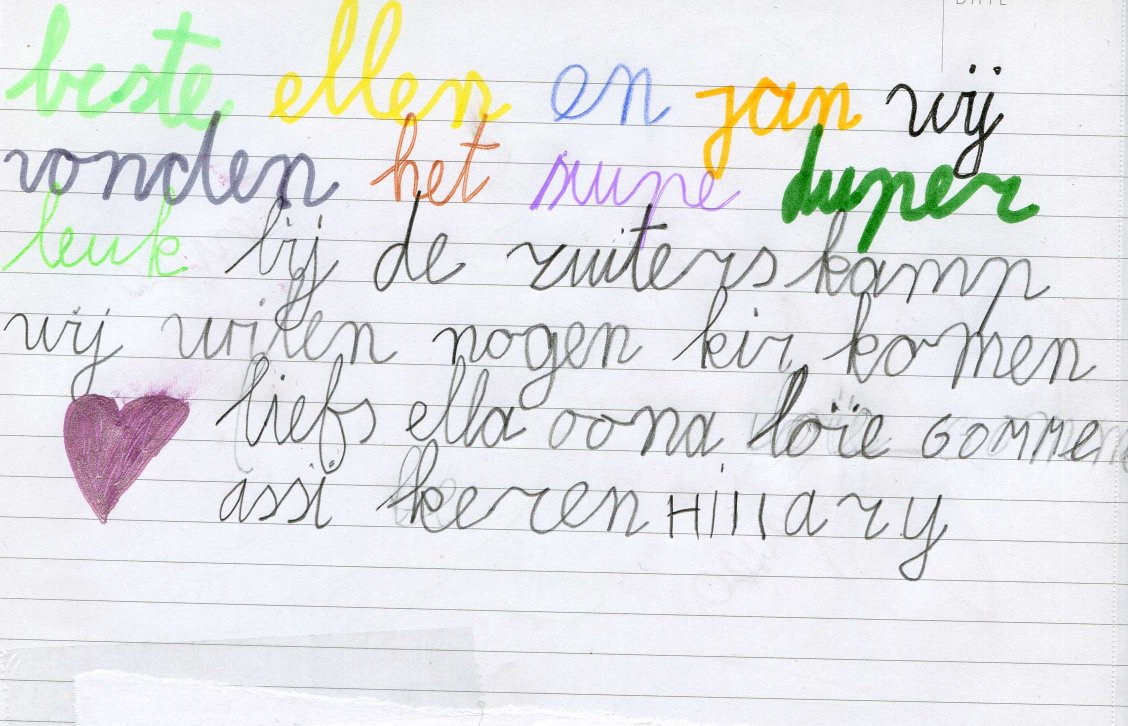 DATE
beste ellen en jan wij
vonden het supe duper
leuk bij de ruiterskamp
wij wilen nogen kir komen
liefs ella oona loïe Gomme
assi keren Hillary